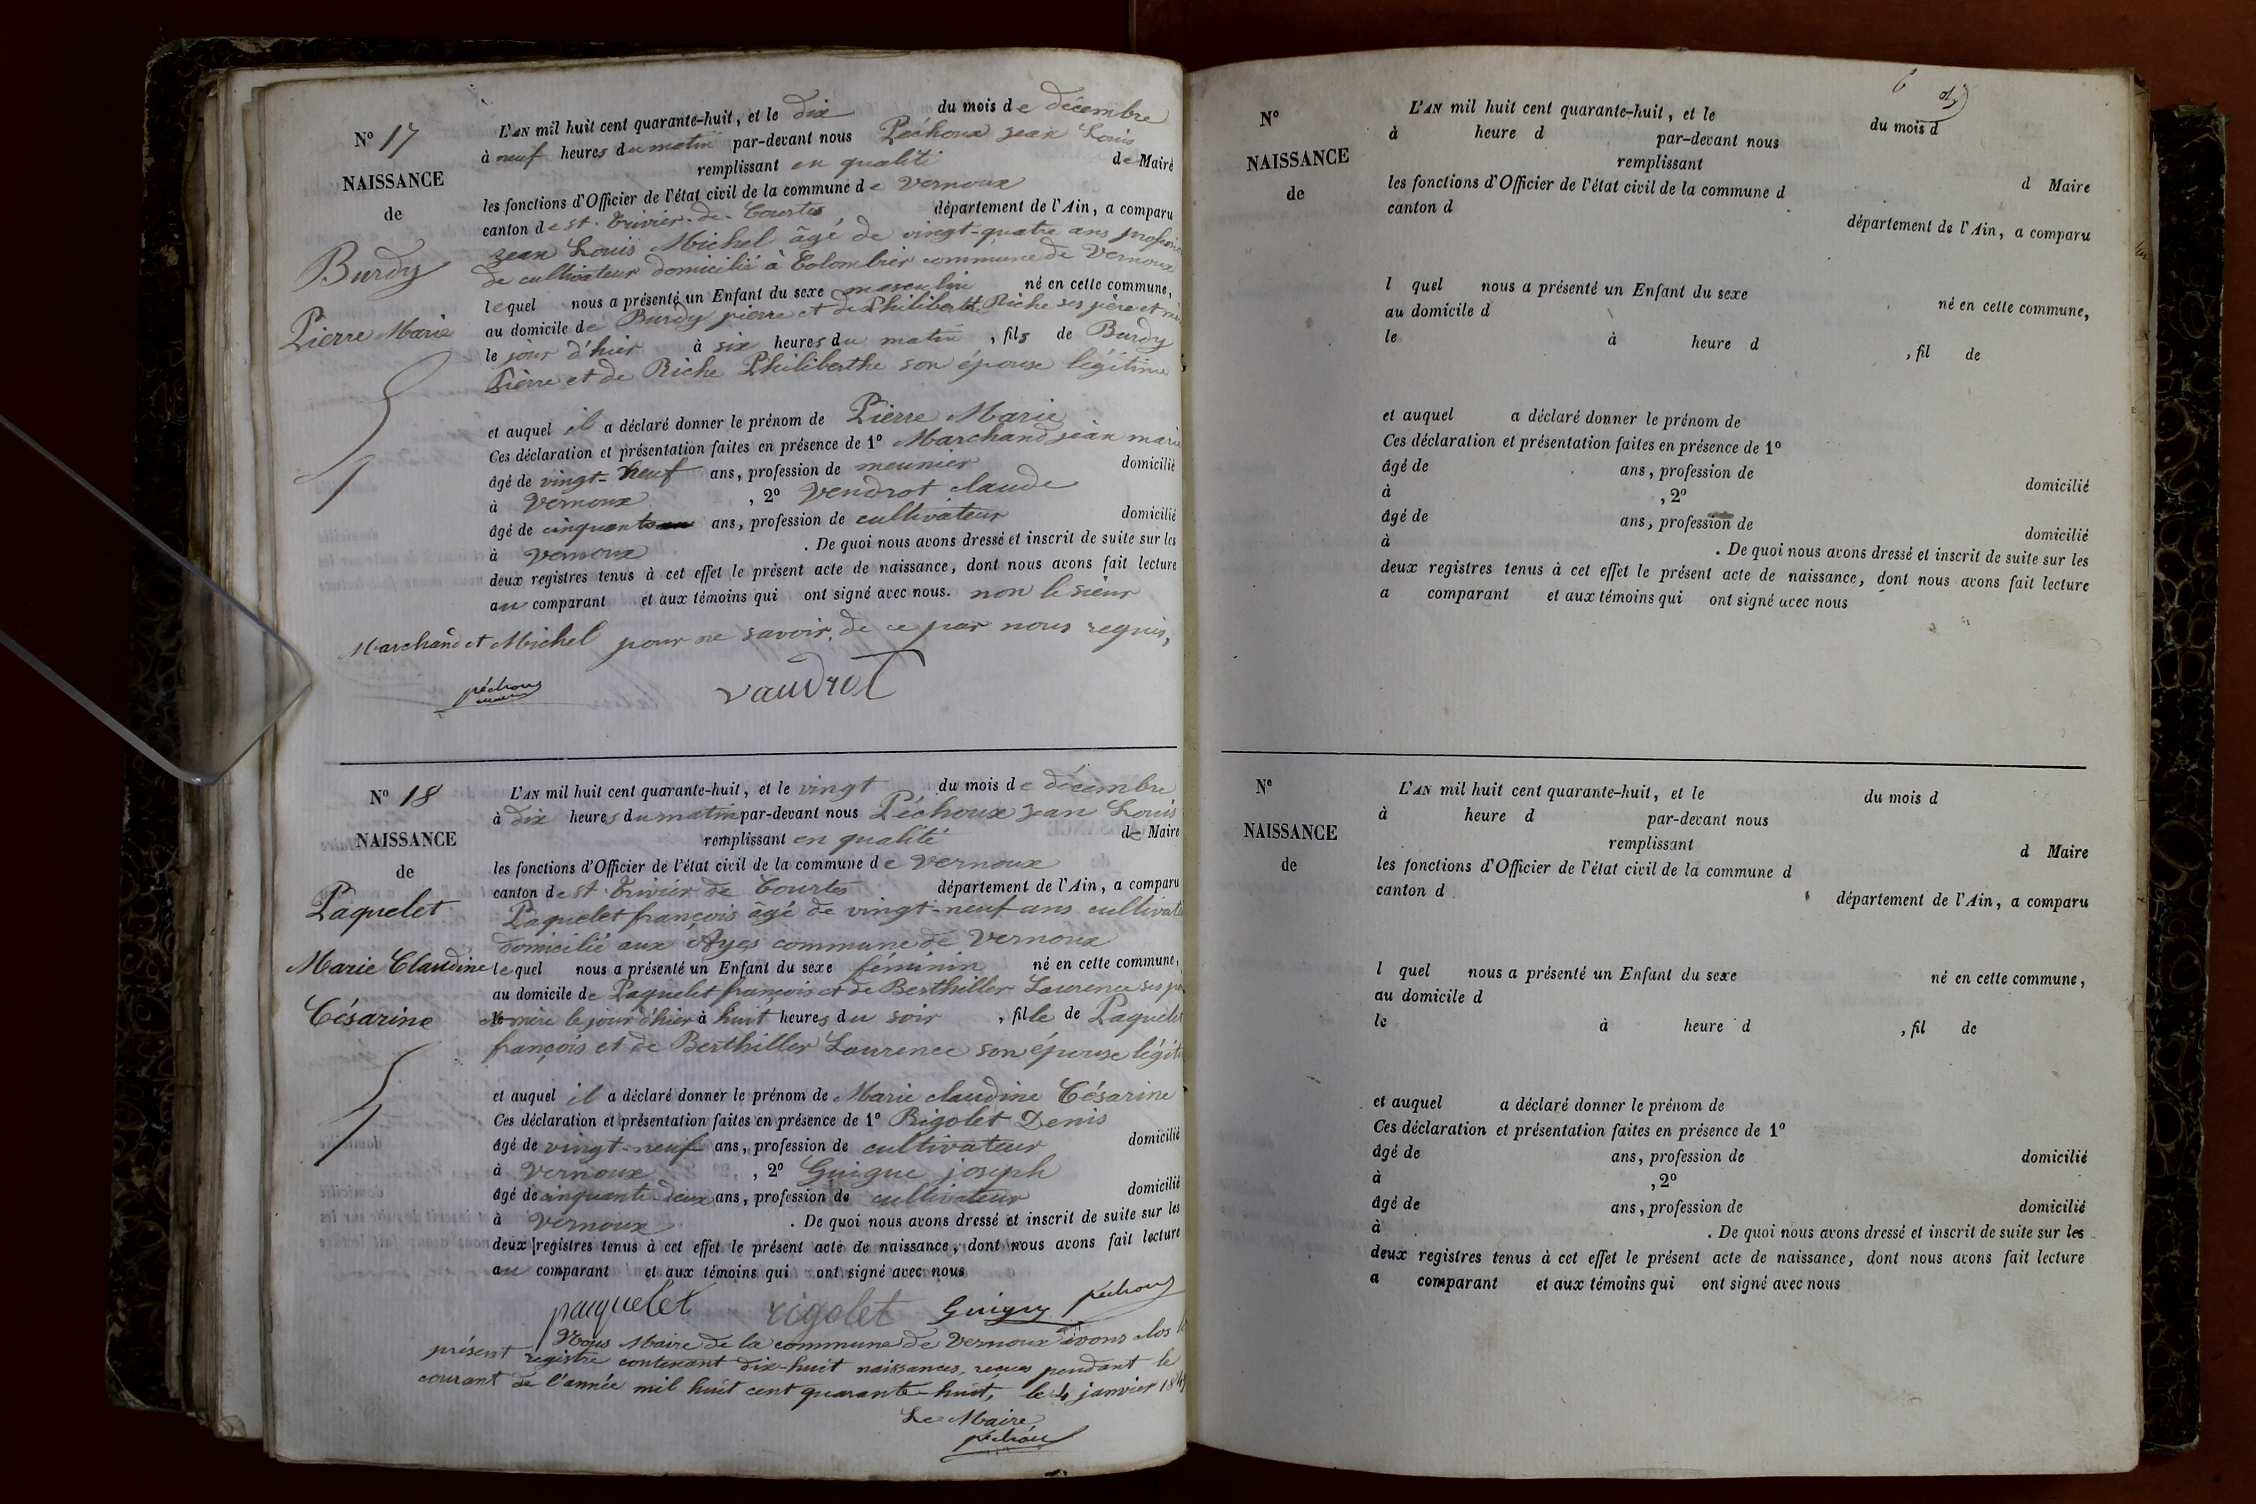 N° 17
NAISSANCE
de
Burdy
Pierre Marie
L'AN mil huit cent quarante-huit, et le dix du mois de décembre
à neuf heures du matin par-devant nous Péchoux jean Louis
remplissant en qualité de Maire
les fonctions d'Officier de l'état civil de la commune de Vernoux
canton de st. Trivier-de-Courtes département de l'Ain, a comparu
jean Louis Michel âgé de vingt-quatre ans profession
de cultivateur domicilié à Colombier commune de Vernoux
lequel nous a présenté un Enfant du sexe masculin né en cette commune,
au domicile de Burdy pierre et de Philiberthe Riche ses père et
le jour d'hier à six heures du matin, fils de Burdy
Pierre et de Riche Philiberthe son épouse légitime
et auquel il a déclaré donner le prénom de Pierre Marie
Ces déclaration et présentation faites en présence de 1° Marchand jean marie
âgé de vingt-neuf ans, profession de meunier domicilié
à Vernoux, 2° Vendrot claude
âgé de cinquante ans, profession de cultivateur domicilié
à Vernoux. De quoi nous avons dressé et inscrit de suite sur les
deux registres tenus à cet effet le présent acte de naissance, dont nous avons fait lecture
au comparant et aux témoins qui ont signé avec nous. non le sieur
Marchand et Michel pour ne savoir, de ce par nous requis,
péchoux
maire
vaudrot
N° 18
NAISSANCE
de
Paquelet
Marie Claudine
Césarine
L'AN mil huit cent quarante-huit, et le vingt du mois de décembre
à dix heures du matin par-devant nous Péchoux jean Louis
remplissant en qualité de Maire
les fonctions d'Officier de l'état civil de la commune de Vernoux
canton de st. Trivier de Courtes département de l'Ain, a comparu
Paquelet françois âgé de vingt-neuf ans cultivat
domicilié aux Ayes commune de Vernoux
lequel nous a présenté un Enfant du sexe féminin né en cette commune,
au domicile de Paquelet françois et de Berthiller Laurence ses
mère le jour d'hier à huit heures du soir, fille de Paquelet
françois et de Berthiller Laurence son épouse légit
et auquel il a déclaré donner le prénom de Marie claudine Césarine
Ces déclaration et présentation faites en présence de 1° Rigolet Denis
âgé de vingt-neuf ans, profession de cultivateur domicilié
à Vernoux, 2° Guigue joseph
âgé de cinquante-deux ans, profession de cultivateur domicilié
à Vernoux. De quoi nous avons dressé et inscrit de suite sur les
deux registres tenus à cet effet le présent acte de naissance, dont nous avons fait lecture
au comparant et aux témoins qui ont signé avec nous
paquelet rigolet Guigue péchoux
Nous Maire de la commune de Vernoux avons clos le
présent registre contenant dix-huit naissances, reçues pendant le
courant de l'année mil huit cent quarante-huit, le 4 janvier 1849
Le Maire,
péchoux
N°
NAISSANCE
de
L'AN mil huit cent quarante-huit, et le du mois d
à heure d par-devant nous
remplissant d Maire
les fonctions d'Officier de l'état civil de la commune d
canton d département de l'Ain, a comparu
l quel nous a présenté un Enfant du sexe né en cette commune,
au domicile d
le à heure d , fil de
et auquel a déclaré donner le prénom de
Ces déclaration et présentation faites en présence de 1°
âgé de ans, profession de domicilié
à , 2°
âgé de ans, profession de domicilié
à . De quoi nous avons dressé et inscrit de suite sur les
deux registres tenus à cet effet le présent acte de naissance, dont nous avons fait lecture
a comparant et aux témoins qui ont signé avec nous
N°
NAISSANCE
de
L'AN mil huit cent quarante-huit, et le du mois d
à heure d par-devant nous
remplissant d Maire
les fonctions d'Officier de l'état civil de la commune d
canton d département de l'Ain, a comparu
l quel nous a présenté un Enfant du sexe né en cette commune,
au domicile d
le à heure d , fil de
et auquel a déclaré donner le prénom de
Ces déclaration et présentation faites en présence de 1°
âgé de ans, profession de domicilié
à , 2°
âgé de ans, profession de domicilié
à . De quoi nous avons dressé et inscrit de suite sur les
deux registres tenus à cet effet le présent acte de naissance, dont nous avons fait lecture
a comparant et aux témoins qui ont signé avec nous